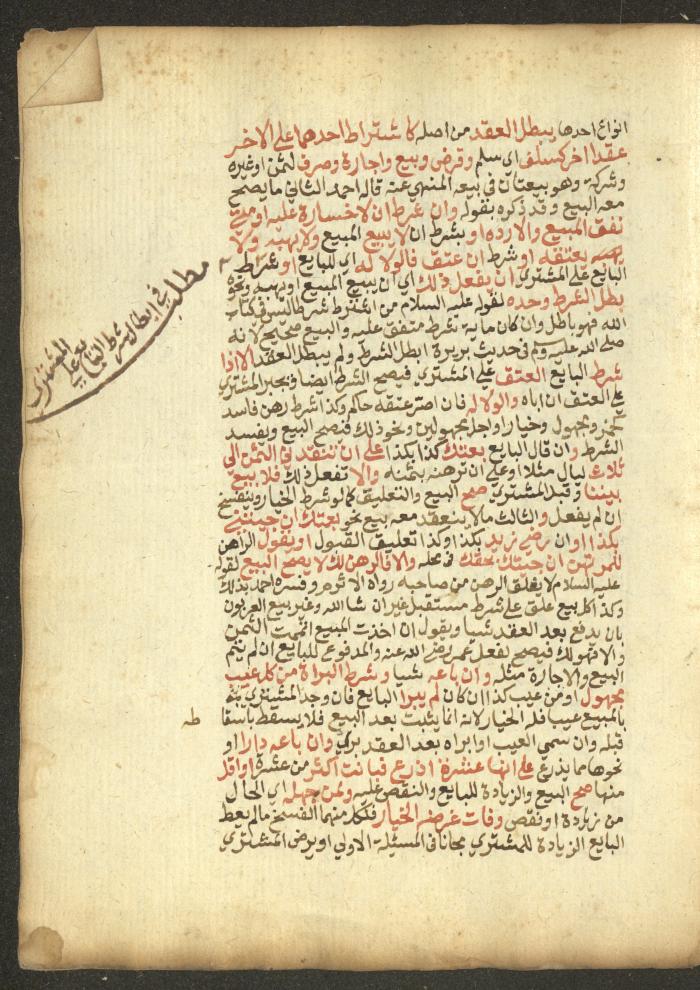 انواع احدها يبطل العقد من اصله كاشتراط احدهما على الاخر
عقدا اخر كسلف اي سلم وقرض وبيع واجارة وصرف لثمن او غيره
وشركة وهو بيعتان في بيعه المنهي عنه قاله احمد الثاني ما يصح
معه البيع وقد ذكره بقوله وان شرط ان لا خسارة عليه او متى
نفق المبيع والا رده او بشرط ان لا يبيع المبيع ولا يهبه ولا
يعتقه او شرط ان عتق فالولا له اي للبايع او شرط
البايع على المشتري ان يفعل ذلك اي ان يبيع المبيع او يهبه ونحوه
بطل الشرط وحده لقوله عليه السلام من اشترط شرطا ليس في كتاب
الله فهو باطل وان كان ماية شرط متفق عليه والبيع صحيح لانه
صلى الله عليه وسلم في حديث بريرة ابطل الشرط ولم يبطل العقد الا اذا
شرط البايع العتق على المشتري فيصح الشرط ايضا ويجبر المشتري
على العتق ان اباه والولا له فان اصر عتقه حاكم وكذا شرط رهن فاسد
كخمر ومجهول وخيار واجل مجهولين ونحو ذلك فيصح البيع ويفسد
الشرط وان قال البايع بعتك كذا بكذا على ان تنقدني الثمن الى
ثلاث ليال مثلا او على ان ترهنه بثمنه والا تفعل ذلك فلا بيع
بيننا وقبل المشتري صح البيع والتعليق كما لو شرط الخيار وينفسخ
ان لم يفعل والثالث ما لا ينعقد معه بيع نحو بعتك ان جيتني
بكذا او ان رضي زيد بكذا وكذا تعليق القبول او يقول الراهن
للمرتهن ان جيتك بحقك في محله والا فالرهن لك لا يصح البيع لقوله
عليه السلام لا يغلق الرهن من صاحبه رواه الاثرم وفسره احمد بذلك
وكذا كل بيع علق على شرط مستقبل غير ان شا الله وغير بيع العربون
بان يدفع بعد العقد شيا ويقول ان اخذت المبيع اتممت الثمن
والا فهو لك فيصح لفعل عمر رضي الله عنه والمدفوع للبايع ان لم يتم
البيع والاجارة مثله وان باعه شيا وشرط البراة من كل عيب
مجهول او من عيب كذا ان كان لم يبرا البايع فان وجد المشتري
بالمبيع عيب فله الخيار لانه انما يثبت بعد البيع فلا يسقط باسقا
طه
قبله وان سمى العيب او ابراه بعد العقد بري وان باعه دارا او
نحوها مما يذرع على انها عشرة اذرع فبانت اكثر من عشرة او اقل
منها صح البيع والزيادة للبايع والنقص عليه ولمن جهله اي الحال
من زيادة او نقص وفات غرضه الخيار فلكل منهما الفسخ ما لم يعط
البايع الزيادة للمشتري مجانا في المسئلة الاولى او يرضى المشتري
مطلب في ابطال شرط البايع على المشتري